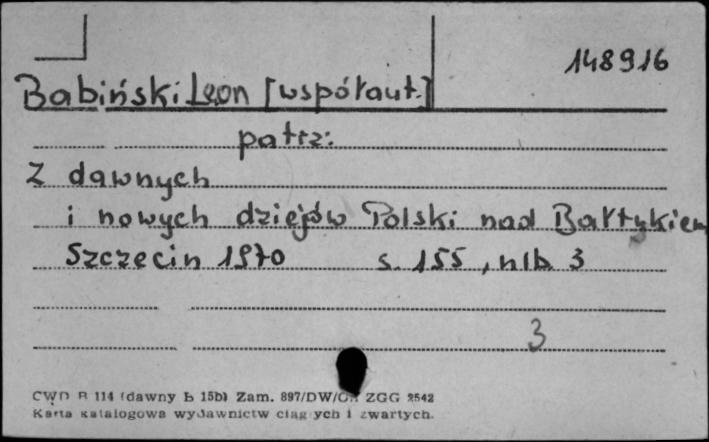 148916
Babiński Leon [współaut.]
patrz:
Z dawnych
i nowych dziejów Polski nad Bałtykiem
Szczecin 1970 s. 155, nlb 3
3
CWD B 114 (dawny Ł 15b) Zam. 897/DW/ ZGG 2542
Karta katalogowa wydawnictw ciągłych i zwartych.